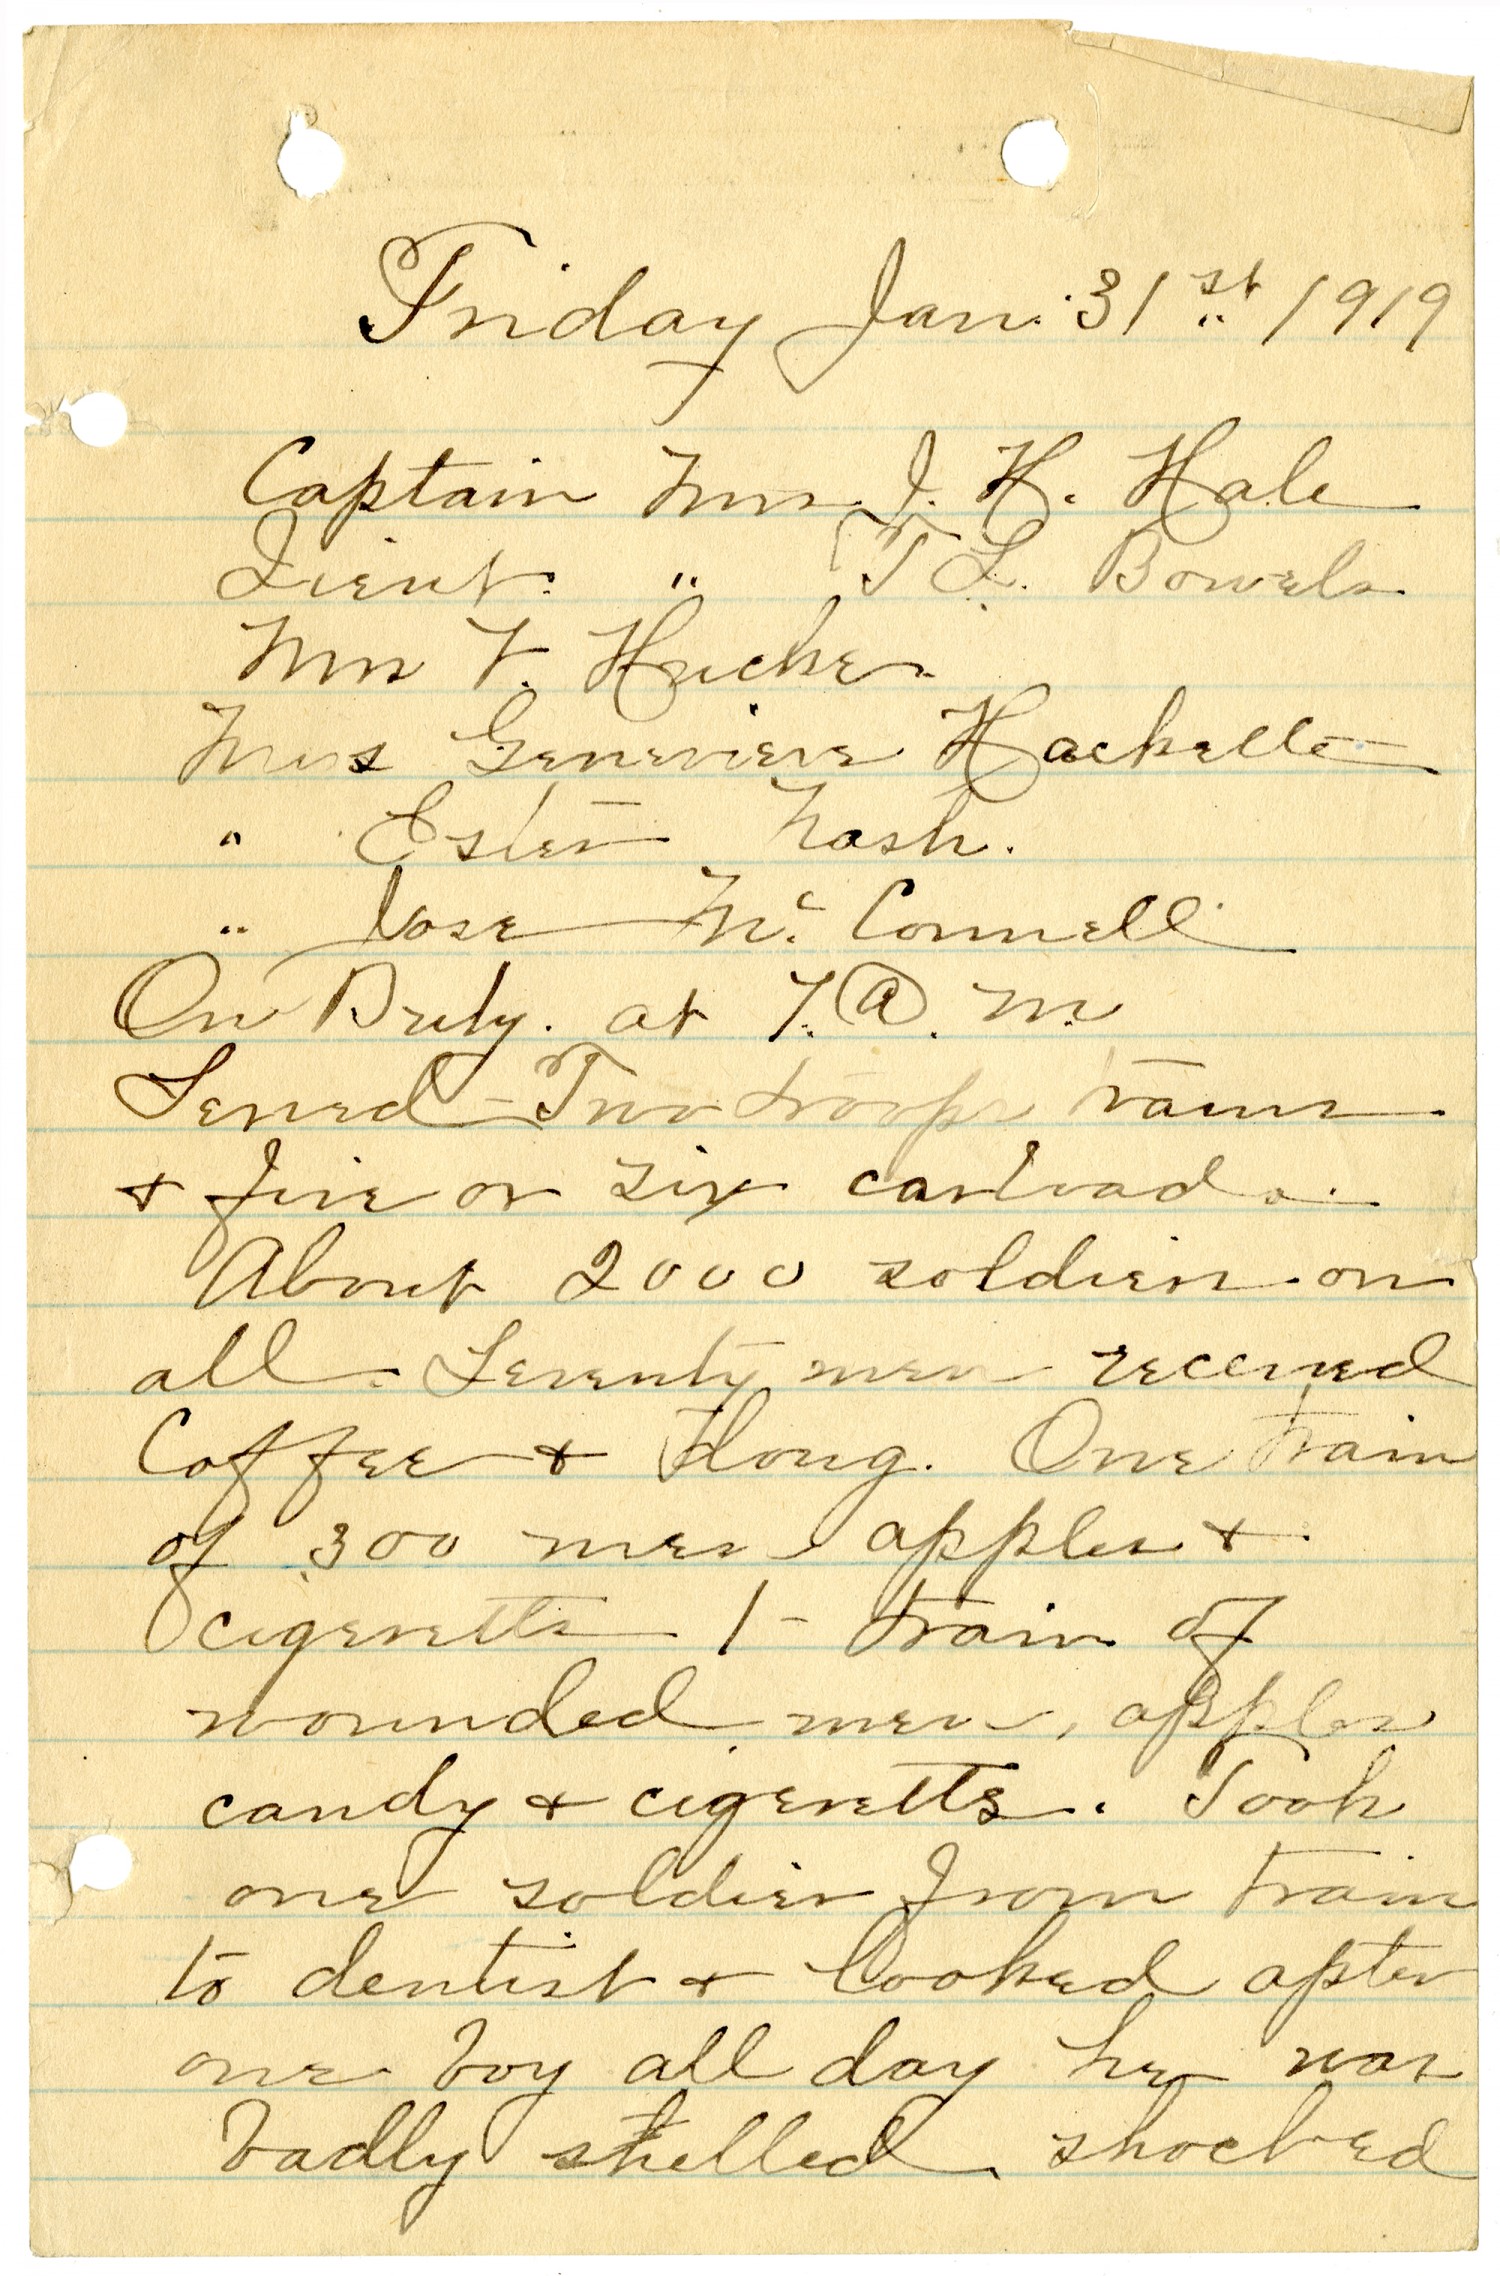 Friday Jan. 31st 1919
Captain Mrs. J. H. Hale
Lieut. " T. L. Bowels
Mrs F. Hucke.
Miss Genevieve Hackett
" Ester Nash.
" Rose Mc Connell
On Duty. at 7. A. M.
Served - Two troops trains
& five or six carloads.
About 2000 soldiers on
all. Seventy men received
Coffee & Doug. One train
of 300 men apples &
cigeretts 1 - train of
wounded men, apples
candy & cigeretts. Took
one soldier from train
to dentist & looked after
one boy all day he was
badly shelled shocked